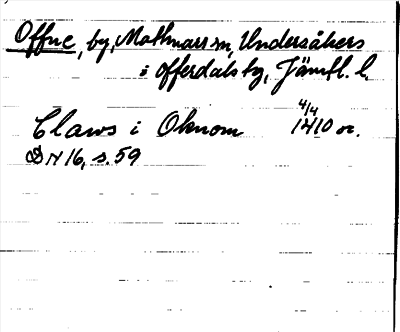 Offne, by, Mattmars sn, Undersåkers
i offerdals tg, Jämtl. l.
4/4
Claws i Oknom 1410 or.
DN 16, s. 59